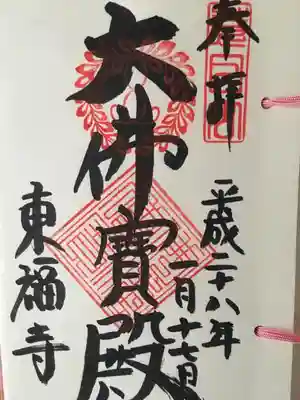 奉拝
平成二十八年
一月十七日
大佛寳殿
東福寺